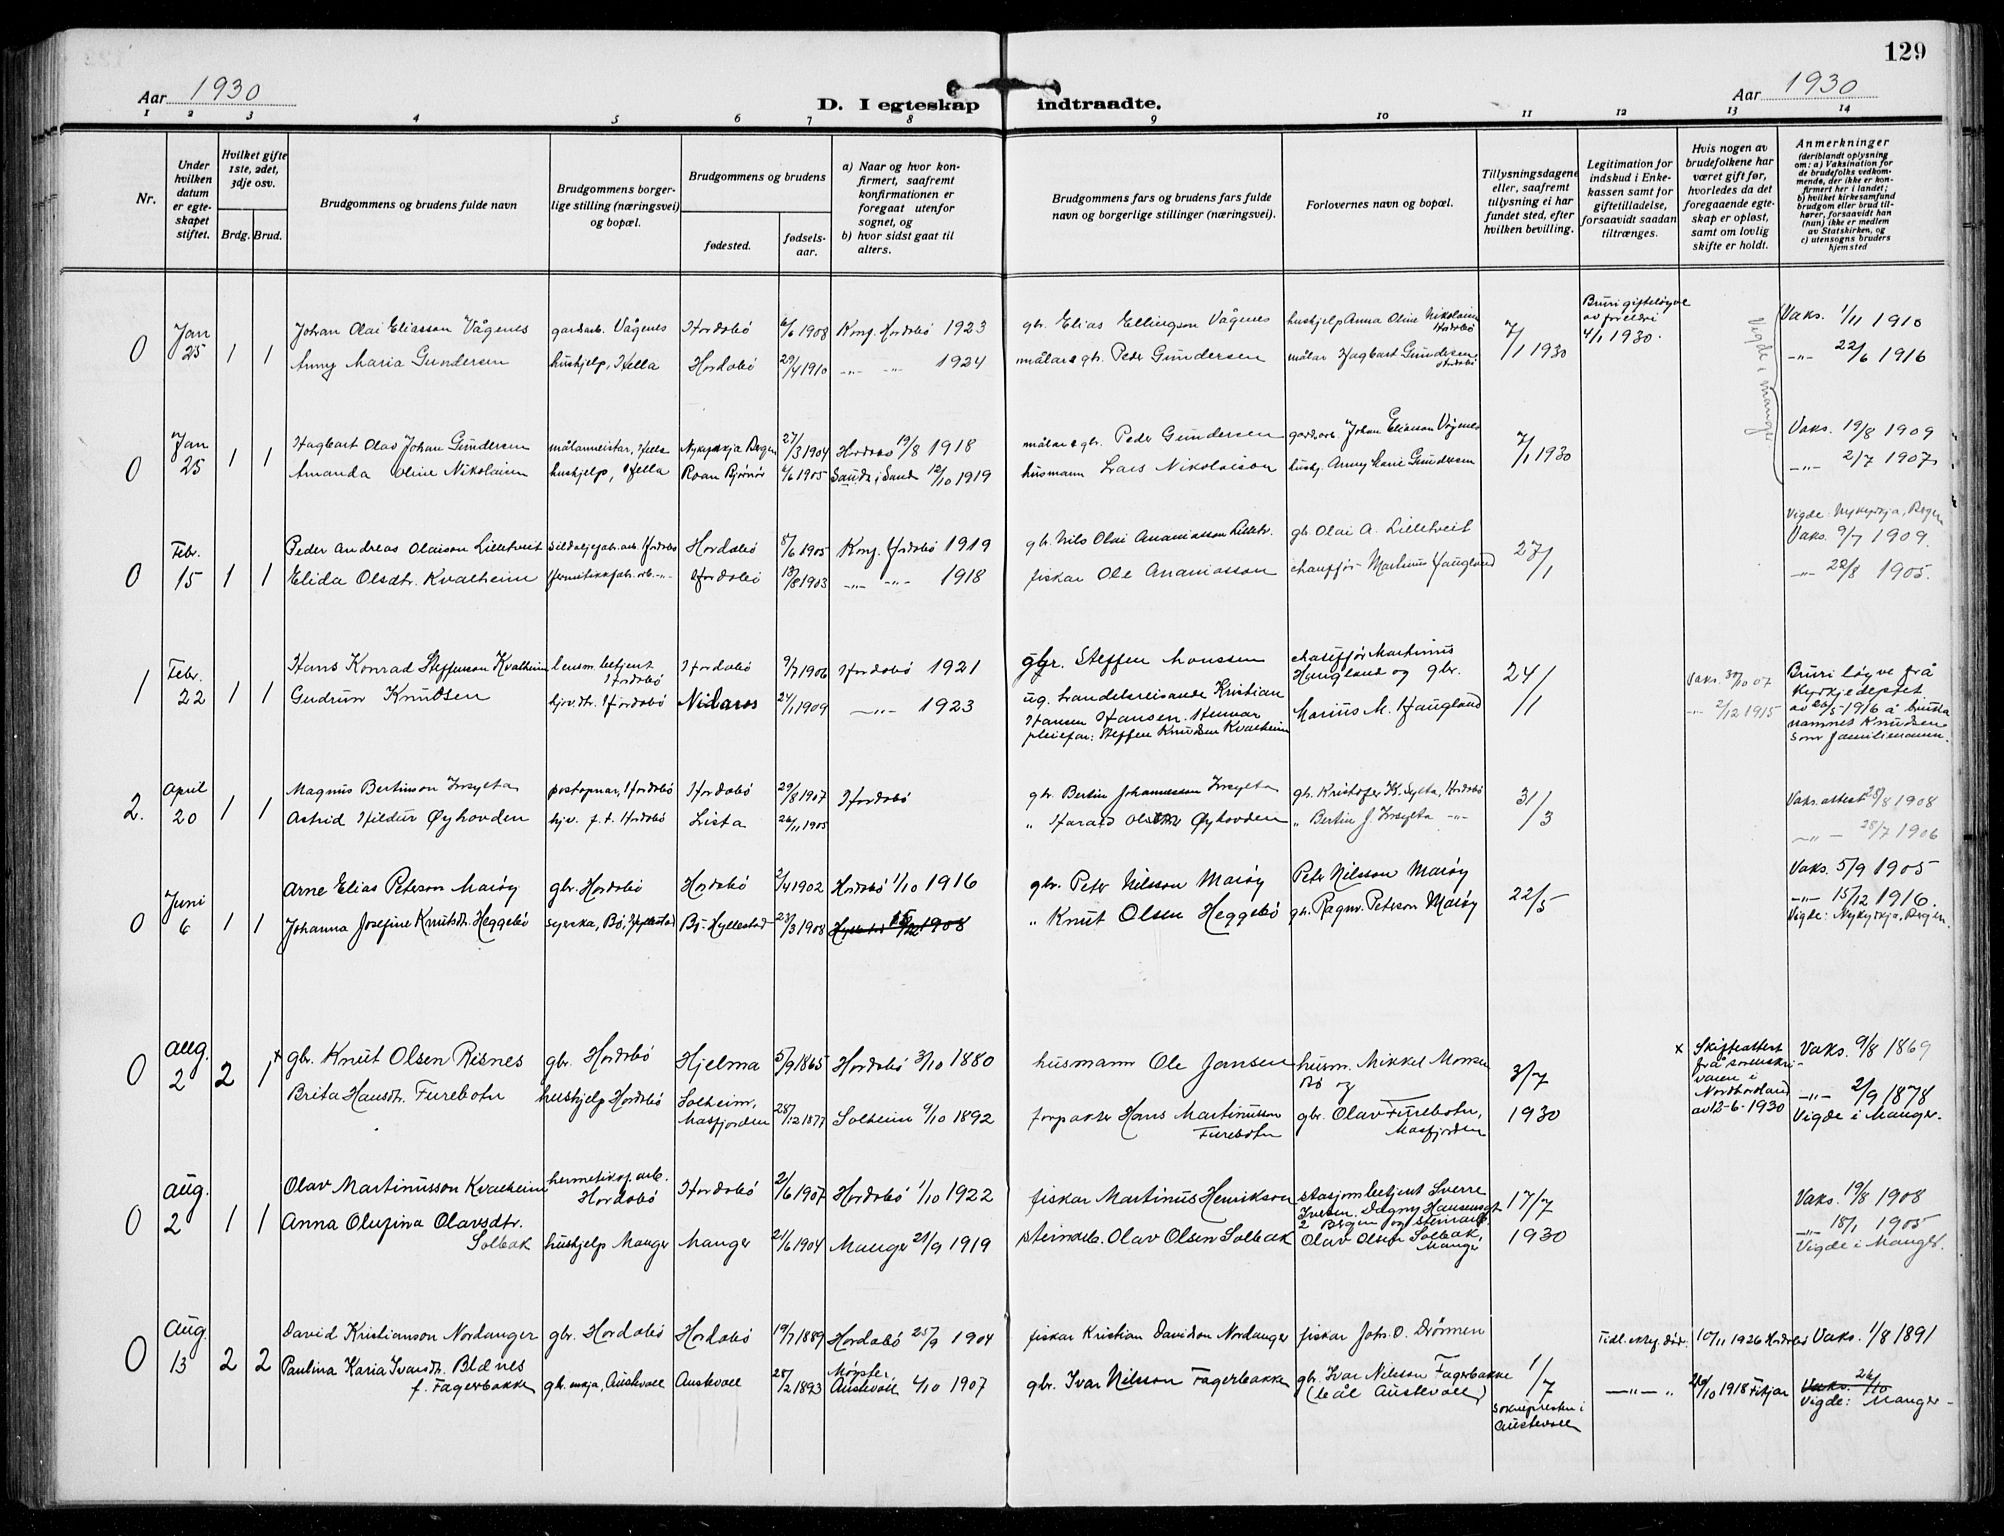 129
Aar 1930
D. I egteskap indtraadte.
Aar 1930
1 2 3 4 5 6 7 8 9 10 11 12 13 14
Nr.
Under hvilken datum er egteskapet stiftet.
Hvilket gifte 1ste, 2det, 3dje osv.
Brdg. Brud.
Brudgommens og brudens fulde navn
Brudgommens borgerlige stilling (næringsvei) og bopæl.
Brudgommens og brudens
fødested.
fødselsaar.
a) Naar og hvor konfirmert, saafremt konfirmationen er foregaat utenfor sognet, og
b) hvor sidst gaat til alters.
Brudgommens fars og brudens fars fulde navn og borgerlige stillinger (næringsvei).
Forlovernes navn og bopæl.
Tillysningsdagene eller, saafremt tillysning ei har fundet sted, efter hvilken bevilling.
Legitimation for indskud i Enkekassen samt for giftetilladelse, forsaavidt saadan tiltrænges.
Hvis nogen av brudefolkene har været gift før, hvorledes da det foregaaende egteskap er opløst, samt om lovlig skifte er holdt.
Anmerkninger (deriblandt oplysning om: a) Vaksination for de brudefolks vedkommende, der ikke er konfirmert her i landet; b) hvilket kirkesamfund brudgom eller brud tilhører, forsaavidt han (hun) ikke er medlem av Statskirken, og c) utensogns bruders hjemsted
0 Jan 25 1 1 Johan Olai Eliasson Vågenes gardarb. Vågenes Hordabö 6/6 1908 Konf. Hordabö 1923 gbr. Elias Ellingson Vågenes hushjelp Anna Oline Nikolaisen Hordabö 7/1 1930 Bruri gifteløyve av foreldri 4/1 1930. Vaks. 1/11 1910
Anny Maria Gundersen hushjelp, Hella Hordabö 29/4 1910 -"- -"- 1924 målar o gbr. Peder Gundersen målar Hagbart Gundersen Hordabö -"- 22/6 1916
Vigde i Manger
0 Jan 25 1 1 Hagbart Olav Johan Gundersen målarmeistar, Hella Nykyrkja Bergen 27/3 1904 Hordabö 19/8 1918 målar o gbr. Peder Gundersen gardarb. Johan Eliasson Vågenes 7/1 1930 Vaks. 19/8 1909
Amanda Oline Nikolaisen hushjelp, Hella Roan Bjørnør 6/6 1905 Sand i Sand 12/10 1919 husmann Lars Nikolaison hushj. Anny Marie Gundersen -"- 2/7 1907
0 Febr. 15 1 1 Peder Andreas Olaison Lilletveit sildoljefabr.arb. Hordabö Hordabö 8/6 1905 Konf. Hordabö 1919 gbr. Nils Olai Ananiasson Lilletv. gbr. Olai A. Lilletveit 27/1 Vigde: Nykyrkja, Bergen Vaks. 9/7 1909.
Elida Olsdtr. Kvalheim hermetikkfabr. arb. -"- Hordabö 13/8 1903 -"- -"- 1918 fiskar Ole Ananiasson chauffør Martinus Haugland -"- 22/8 1905.
1 Febr. 22 1 1 Hans Konrad Steffenson Kvalheim lensm. betjent Hordabö Hordabö 9/7 1906 Hordabö 1921 gbr. Steffen Monssen chauffør Martinus Haugland og gbr. 24/1 Vaks. 30/10 07 Bruri løyve frå Kyrkjedeptet av 26/5-1916 å bruka namnet Knudsen som familienamn.
Gudrun Knudsen hjv. dtr. Hordabö Nidaros 24/1 1909 -"- 1923 ug. handelsreisande Kristian Hansen Hansen. pleiefar: Steffen Knudsen Kvalheim Marius M. Haugland -"- 2/12 1915
2. April 20 1 1 Magnus Bertinson Insylta postopnar, Hordabö Hordabö 29/8 1907 Hordabö gbr. Bertin Johannesson Insylta gbr. Kristofer K. Sylta, Hordabö 31/3 Vaks. attest 25/8 1908
Astrid Hildur Øyhovden hjv. f.t. Hordabö Lista 26/11 1905 " Harald Olsen Øyhovden " Bertin J. Insylta -"- -"- 28/7 1906
0 Juni 6 1 1 Arne Elias Peterson Marøy gbr. Hordabö Hordabö 2/4 1902 Hordabö 1/10 1916 gbr. Peter Nilsson Marøy Peter Nilsson Marøy 22/5 Vaks. 5/9 1905
Johanna Josefine Knutsdr. Heggebö syerska, Bö, Hyllestad Bö-Hyllestad 23/3 1908 1908 " Knut Olsen Heggebö gbr. Ragnv. Peterson Marøy -"- 15/12 1916. Vigde: Nykyrkja, Bergen.
0 Aug. 2 2 1 x gbr. Knut Olsen Risnes gbr. Hordabö Hjelma 5/9 1865 Hordabö 3/10 1880 husmann Ole Jansen husm. Mikkel Monsen Bö og 3/7 1930 x Skifteattest frå sorenskrivaren i Nordhordland av 12-6-1930 Vaks. 9/8 1869
Brita Hansdtr. Furebotn hushjelp Hordabö Solheim, Masfjorden 28/12 1877 Solheim 9/10 1892 forpakter Hans Martinusson Furebotn gbr. Olav Furebotn, Masfjorden -"- 2/9 1878 Vigde i Manger.
0 Aug. 2 1 1 Olav Martinusson Kvalheim hermetikkf. arb. Hordabö Hordabö 2/6 1907 Hordabö 1/10 1922 fiskar Martinus Henrikson stasjonsbetjent Sverre Iversen. Dagny Hansensgt 2 Bergen og steinarb. 17/7 1930 Vaks. 19/8 1908
Anna Olufina Olavsdtr. Solbak hushjelp Manger Manger 21/6 1904 Manger 21/9 1919 steinarb. Olav Olsen Solbak Olav Olsen Solbak, Manger -"- 18/1 1905 Vigde i Manger.
0 Aug. 13 2 2 David Kristianson Nordanger gbr. Hordabö Hordabö 19/7 1889 Hordabö 25/9 1904 fiskar Kristian Davidson Nordanger fiskar Johs. O. Drönen 1/7 soknepresten i Austevoll Tidl. ektef. død. 10/11 1926 Hordabö Vaks. 1/8 1891
Paulina Karia Ivarsdt. Blænes f. Fagerbakke gbr. enkja, Austevoll Austevoll 28/2 1893 Møgster, Austevoll 4/10 1907 gbr. Ivar Nilsson Fagerbakke gbr. Ivar Nilsson Fagerbakke (beål Austevoll) -"- " 10 1918 Fitjar Vaks. 26/10 Vigde: Manger